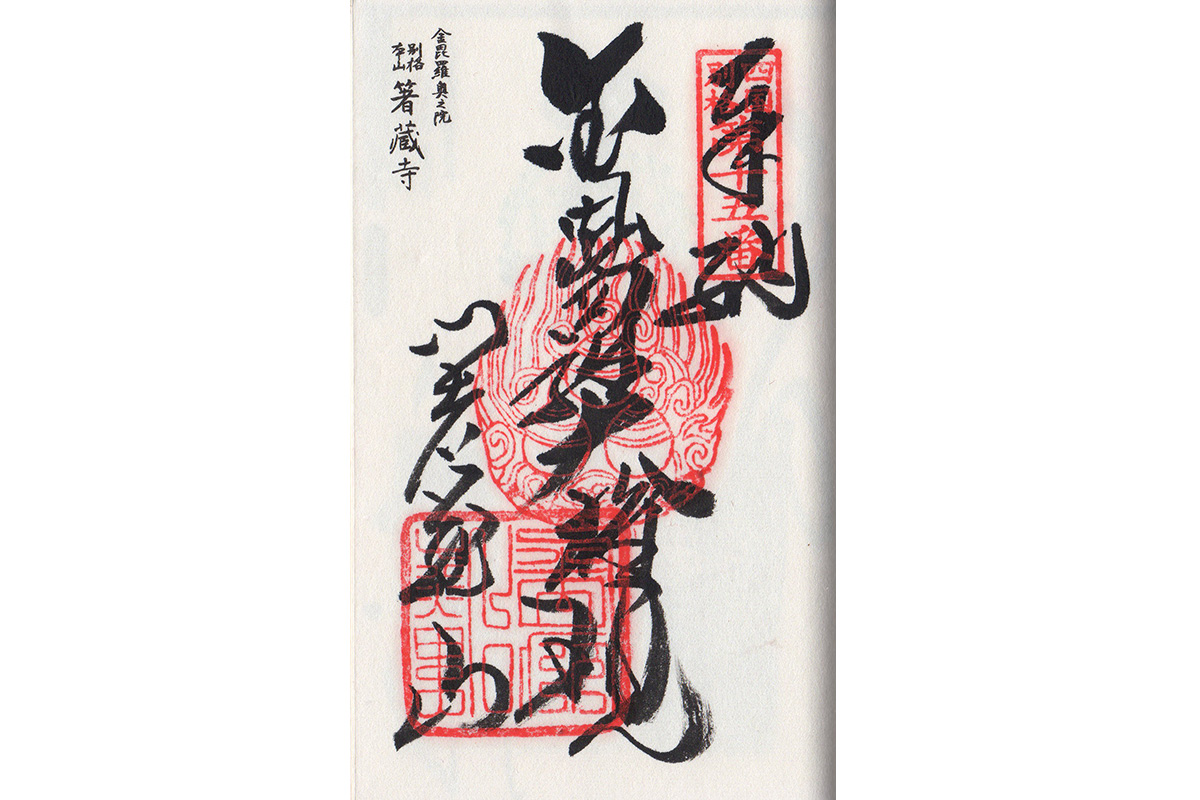 奉拝
四国
別格
第十五番
金毘羅大権現
箸蔵山
金毘羅奥之院
別格
本山
箸蔵寺